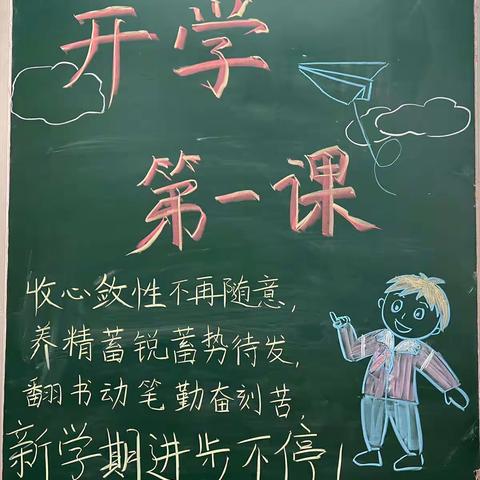 开学
第一课
收心敛性不再随意,
养精蓄锐蓄势待发,
翻书动笔勤奋刻苦,
新学期进步不停!